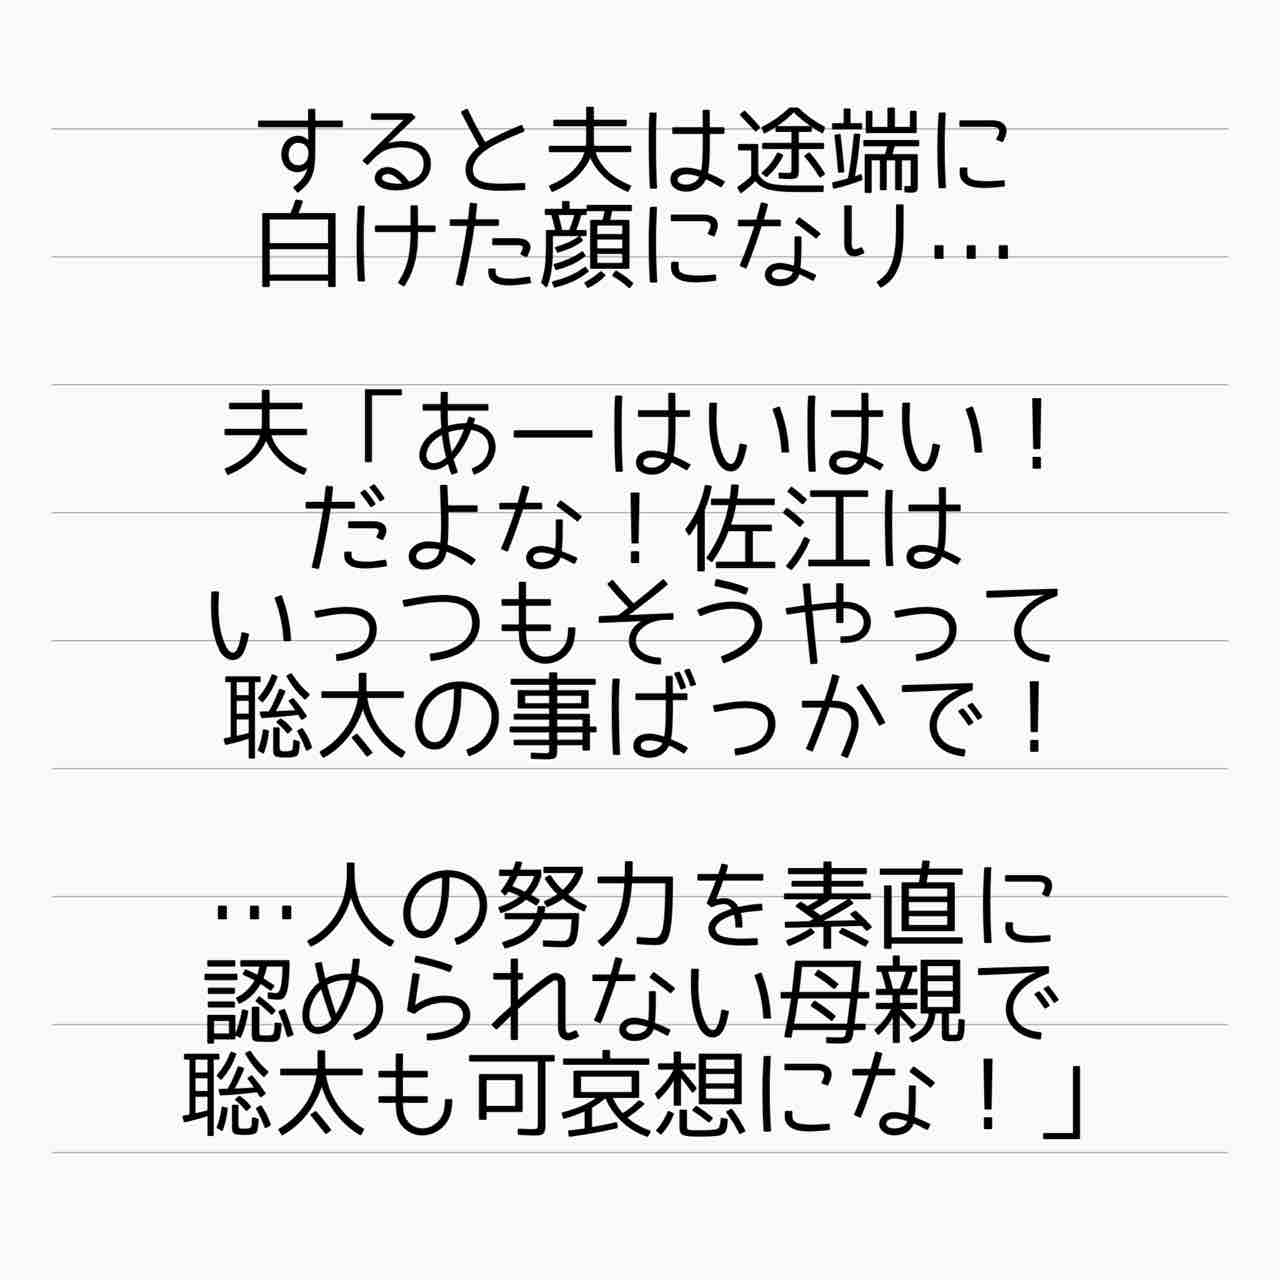 すると夫は途端に
白けた顔になり…
夫「あーはいはい！
だよな！佐江は
いっつもそうやって
聡太の事ばっかで！
…人の努力を素直に
認められない母親で
聡太も可哀想にな！」